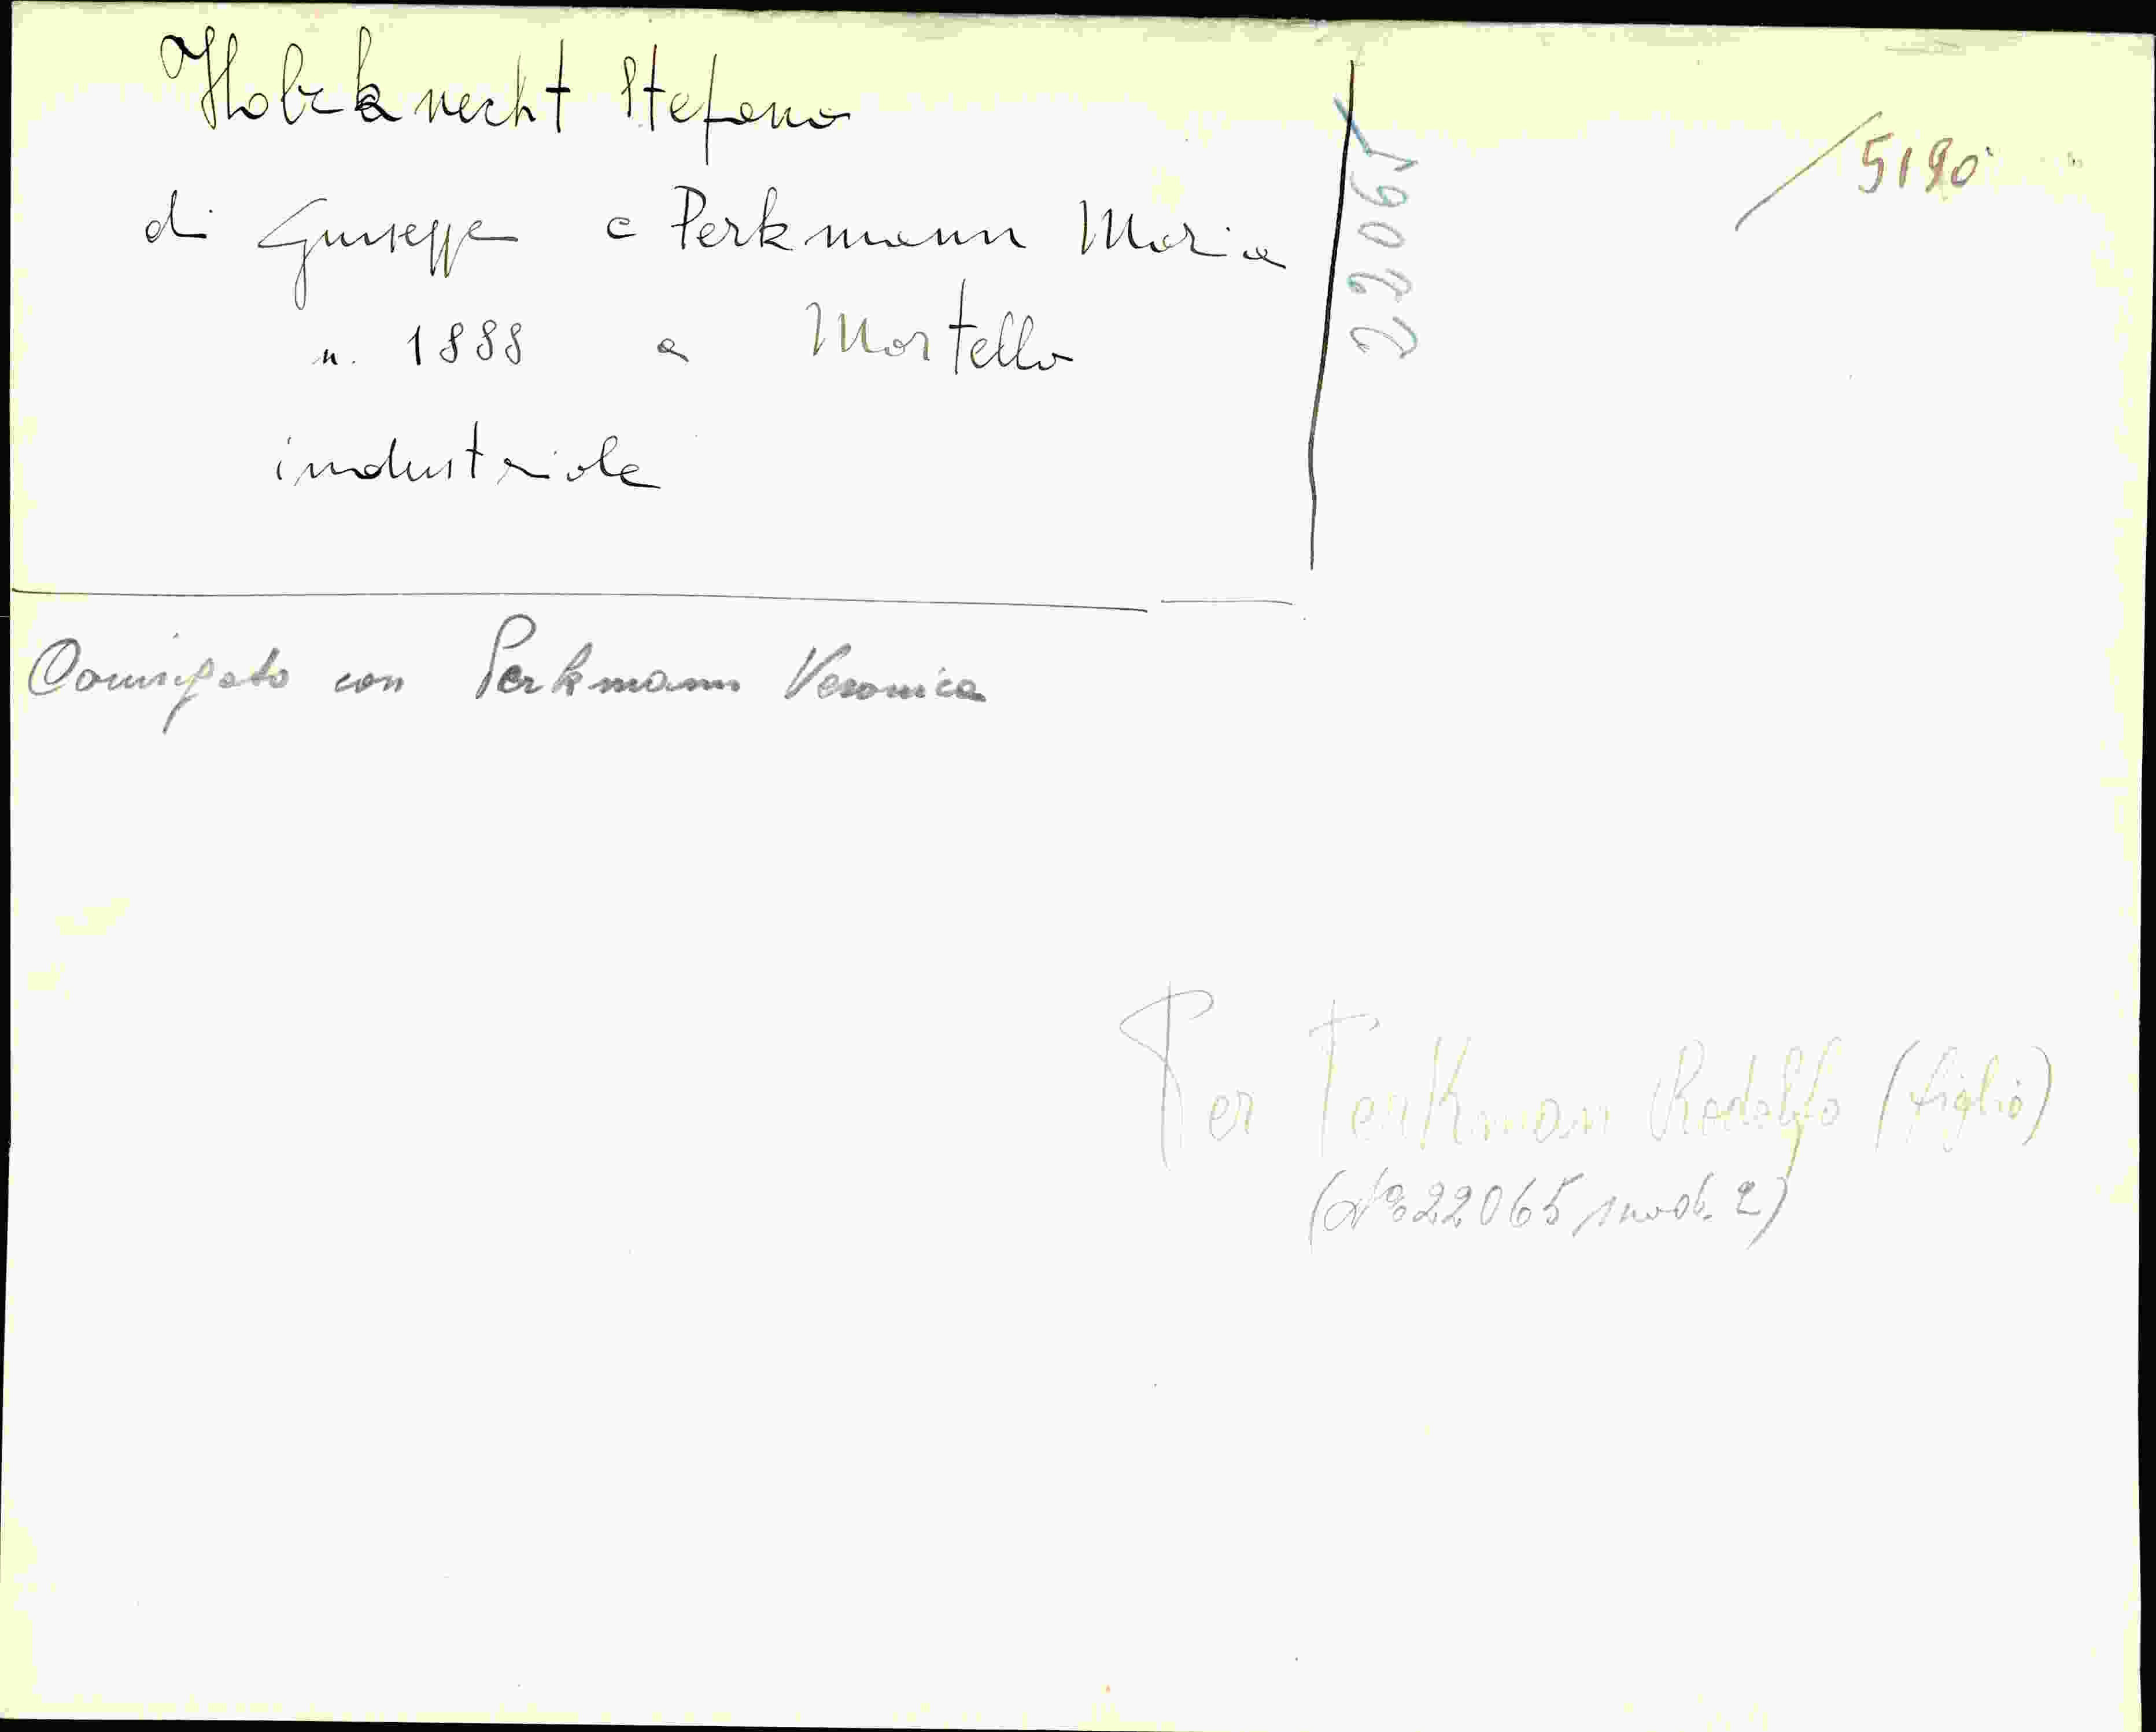 Holzknecht Stefano
/5190
di Giuseppe e Perkmann Maria
22065
n. 1888 a Martello
industriale
Coniugato con Perkmann Veronica
Per Perkman Rodolfo (figlio)
(N° 22065 mod. 2)